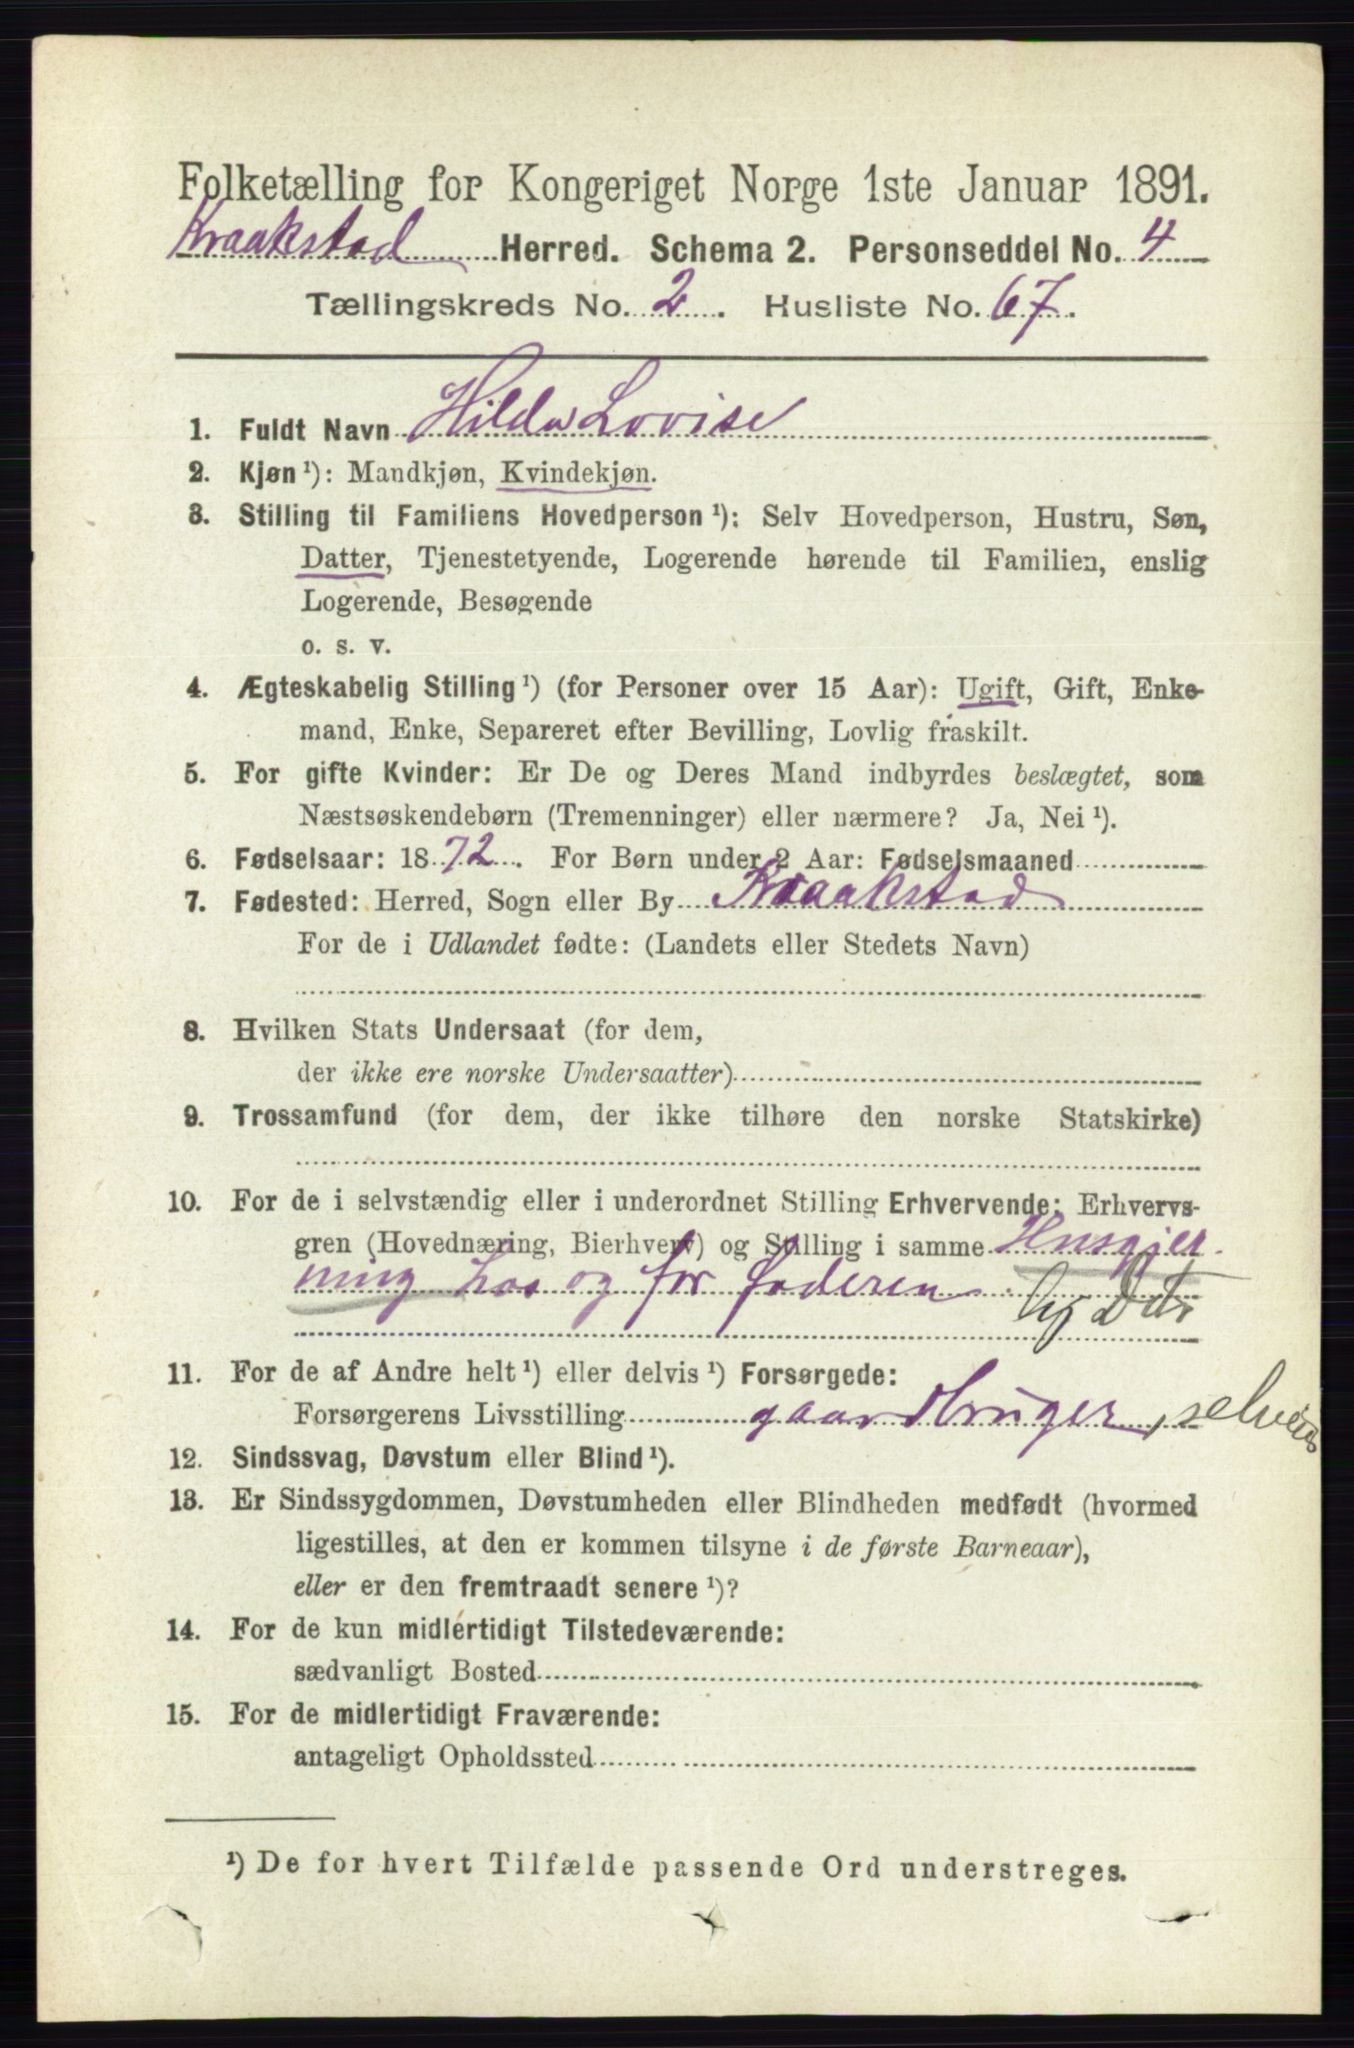 Folketælling for Kongeriget Norge 1ste Januar 1891.
Kraakstad Herred. Schema 2. Personseddel No. 4
Tællingskreds No. 2. Husliste No. 67.
1. Fuldt Navn Hilda Lovise
2. Kjøn ¹): Mandkjøn, Kvindekjøn.
3. Stilling til Familiens Hovedperson ¹): Selv Hovedperson, Hustru, Søn,
Datter, Tjenestetyende, Logerende hørende til Familien, enslig
Logerende, Besøgende
o. s. v.
4. Ægteskabelig Stilling ¹) (for Personer over 15 Aar): Ugift, Gift, Enke-
mand, Enke, Separeret efter Bevilling, Lovlig fraskilt.
5. For gifte Kvinder: Er De og Deres Mand indbyrdes beslægtet, som
Næstsøskendebørn (Tremenninger) eller nærmere? Ja, Nei ¹).
6. Fødselsaar: 1872. For Børn under 2 Aar: Fødselsmaaned
7. Fødested: Herred, Sogn eller By Kraakstad
For de i Udlandet fødte: (Landets eller Stedets Navn)
8. Hvilken Stats Undersaat (for dem,
der ikke ere norske Undersaatter)
9. Trossamfund (for dem, der ikke tilhøre den norske Statskirke)
10. For de i selvstændig eller i underordnet Stilling Erhvervende: Erhvervs-
gren (Hovednæring, Bierhverv) og Stilling i samme Husgjer
ning hos og for faderen.
11. For de af Andre helt ¹) eller delvis ¹) Forsørgede:
Forsørgerens Livsstilling gaardbruger, selveier
12. Sindssvag, Døvstum eller Blind ¹).
13. Er Sindssygdommen, Døvstumheden eller Blindheden medfødt (hvormed
ligestilles, at den er kommen tilsyne i de første Barneaar),
eller er den fremtraadt senere ¹)?
14. For de kun midlertidigt Tilstedeværende:
sædvanligt Bosted
15. For de midlertidigt Fraværende:
antageligt Opholdssted
¹) De for hvert Tilfælde passende Ord understreges.